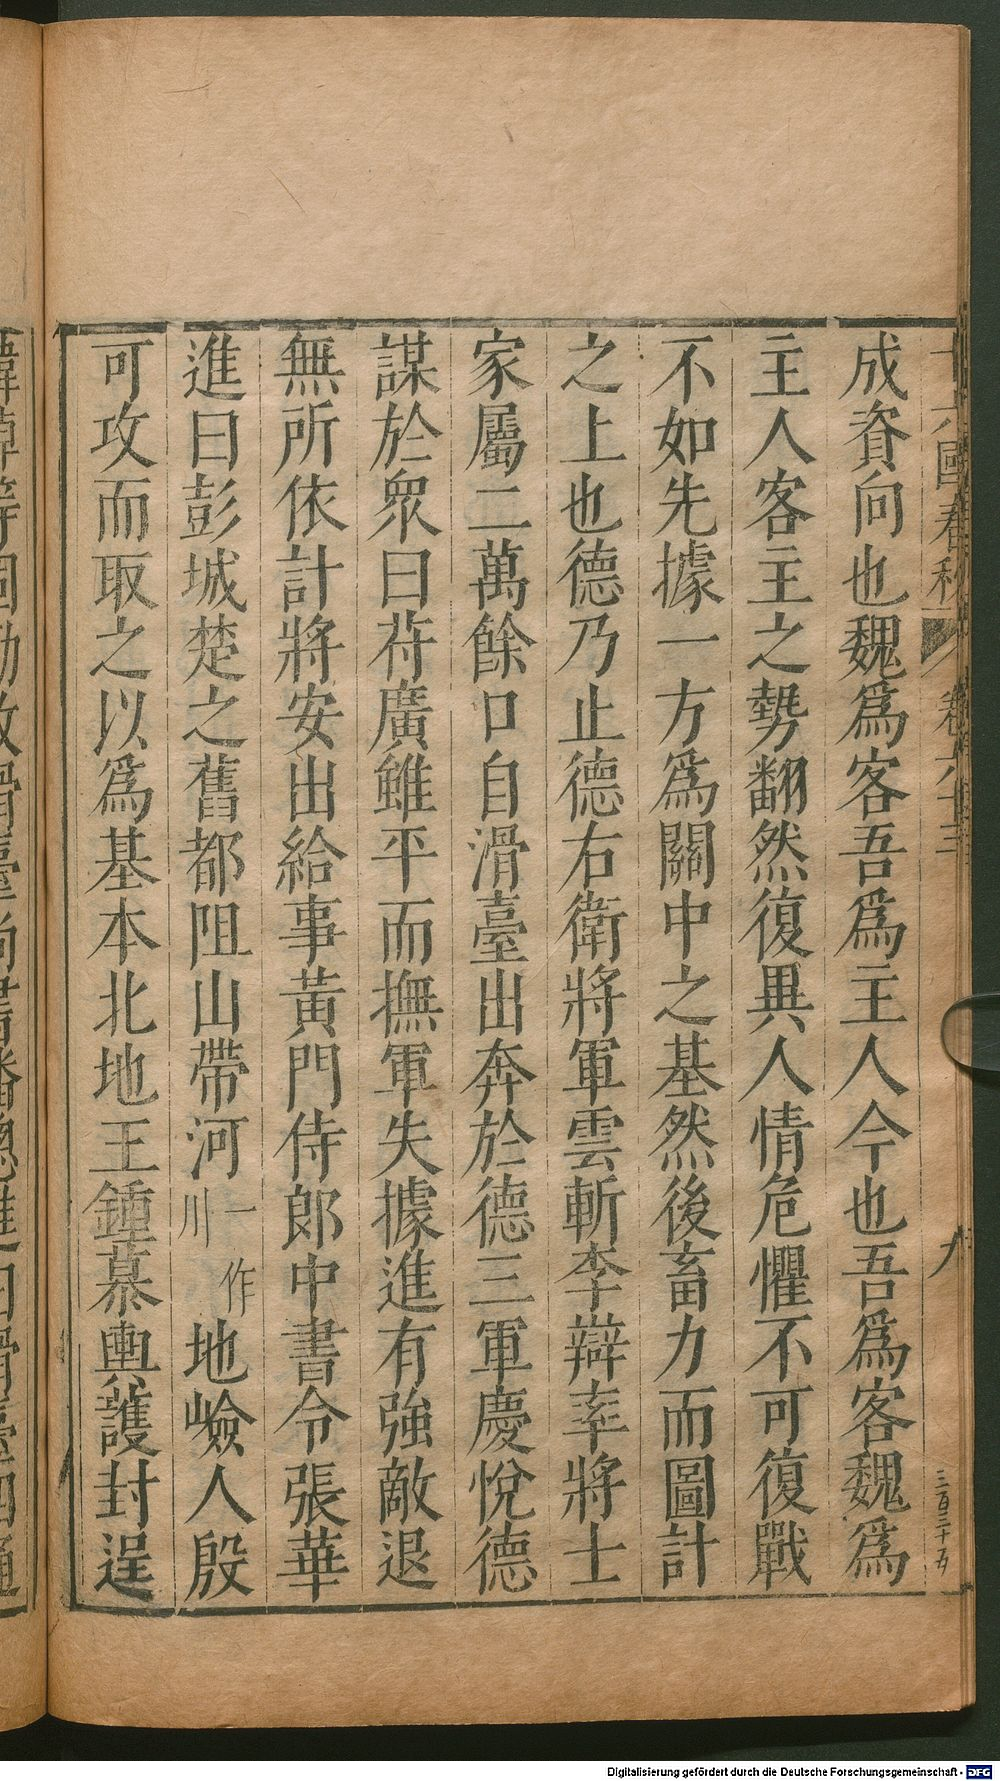 十六國春秋 卷六十三 九 三百三十五
成資向也魏爲客吾爲主人今也吾爲客魏爲
主人客主之勢翻然復異人情危懼不可復戰
不如先據一方爲關中之基然後畜力而圖計
之上也德乃止德右衛將軍雲斬李辯率將士
家屬二萬餘口自滑臺出奔於德三軍慶悅德
謀於眾曰苻廣雖平而撫軍失據進有強敵退
無所依計將安出給事黃門侍郎中書令張華
進曰彭城楚之舊都阻山帶河一作川地嶮人殷
可攻而取之以爲基本北地王鍾慕輿護封逞
Digitalisierung gefördert durch die Deutsche Forschungsgemeinschaft - DFG